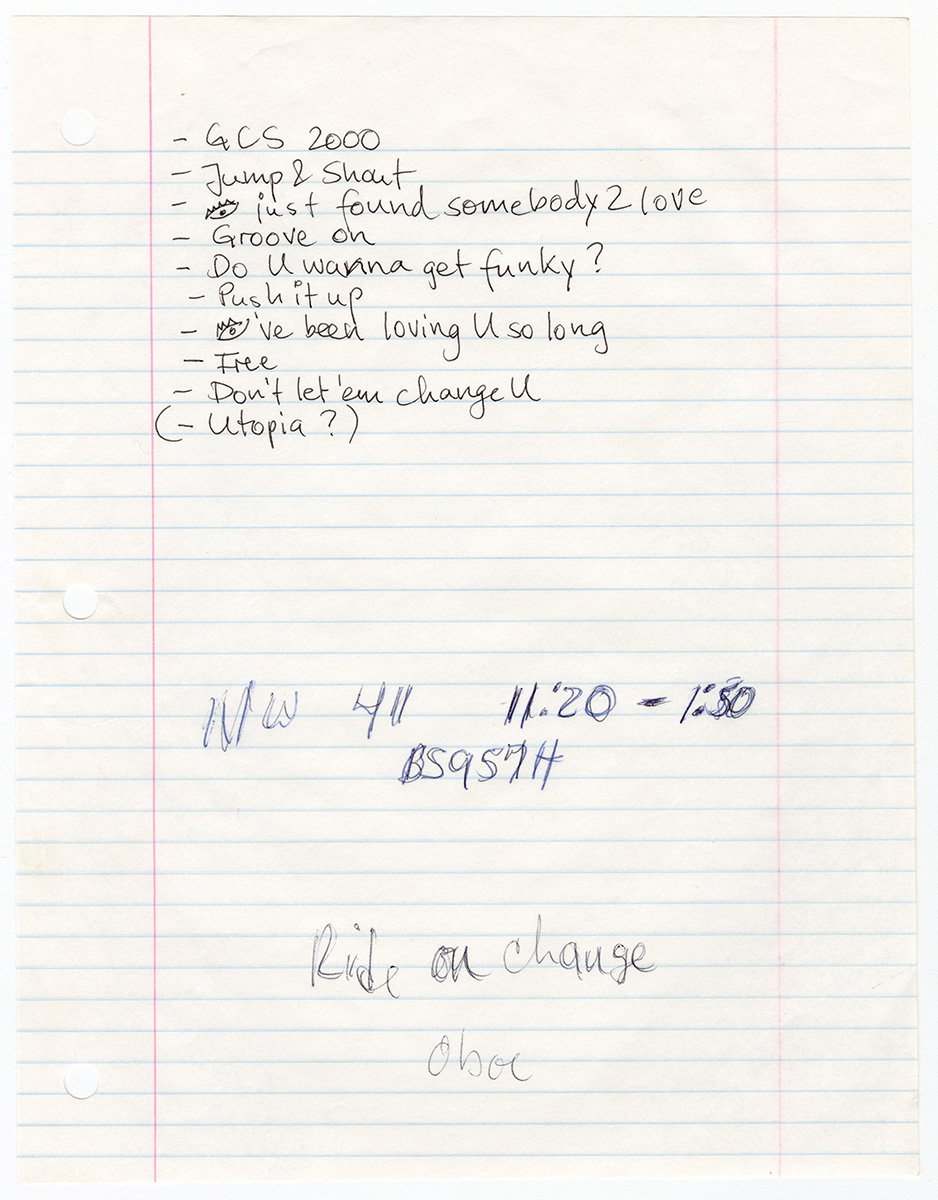 - GCS 2000
- Jump & Shout
- 👁 just found somebody 2 love
- Groove on
- Do U wanna get funky?
- Push it up
- 👁've been loving U so long
- Free
- Don't let 'em change U
(- Utopia?)
NW 411 11:20 - 1:50
BS957H
Ride on change
Oboe